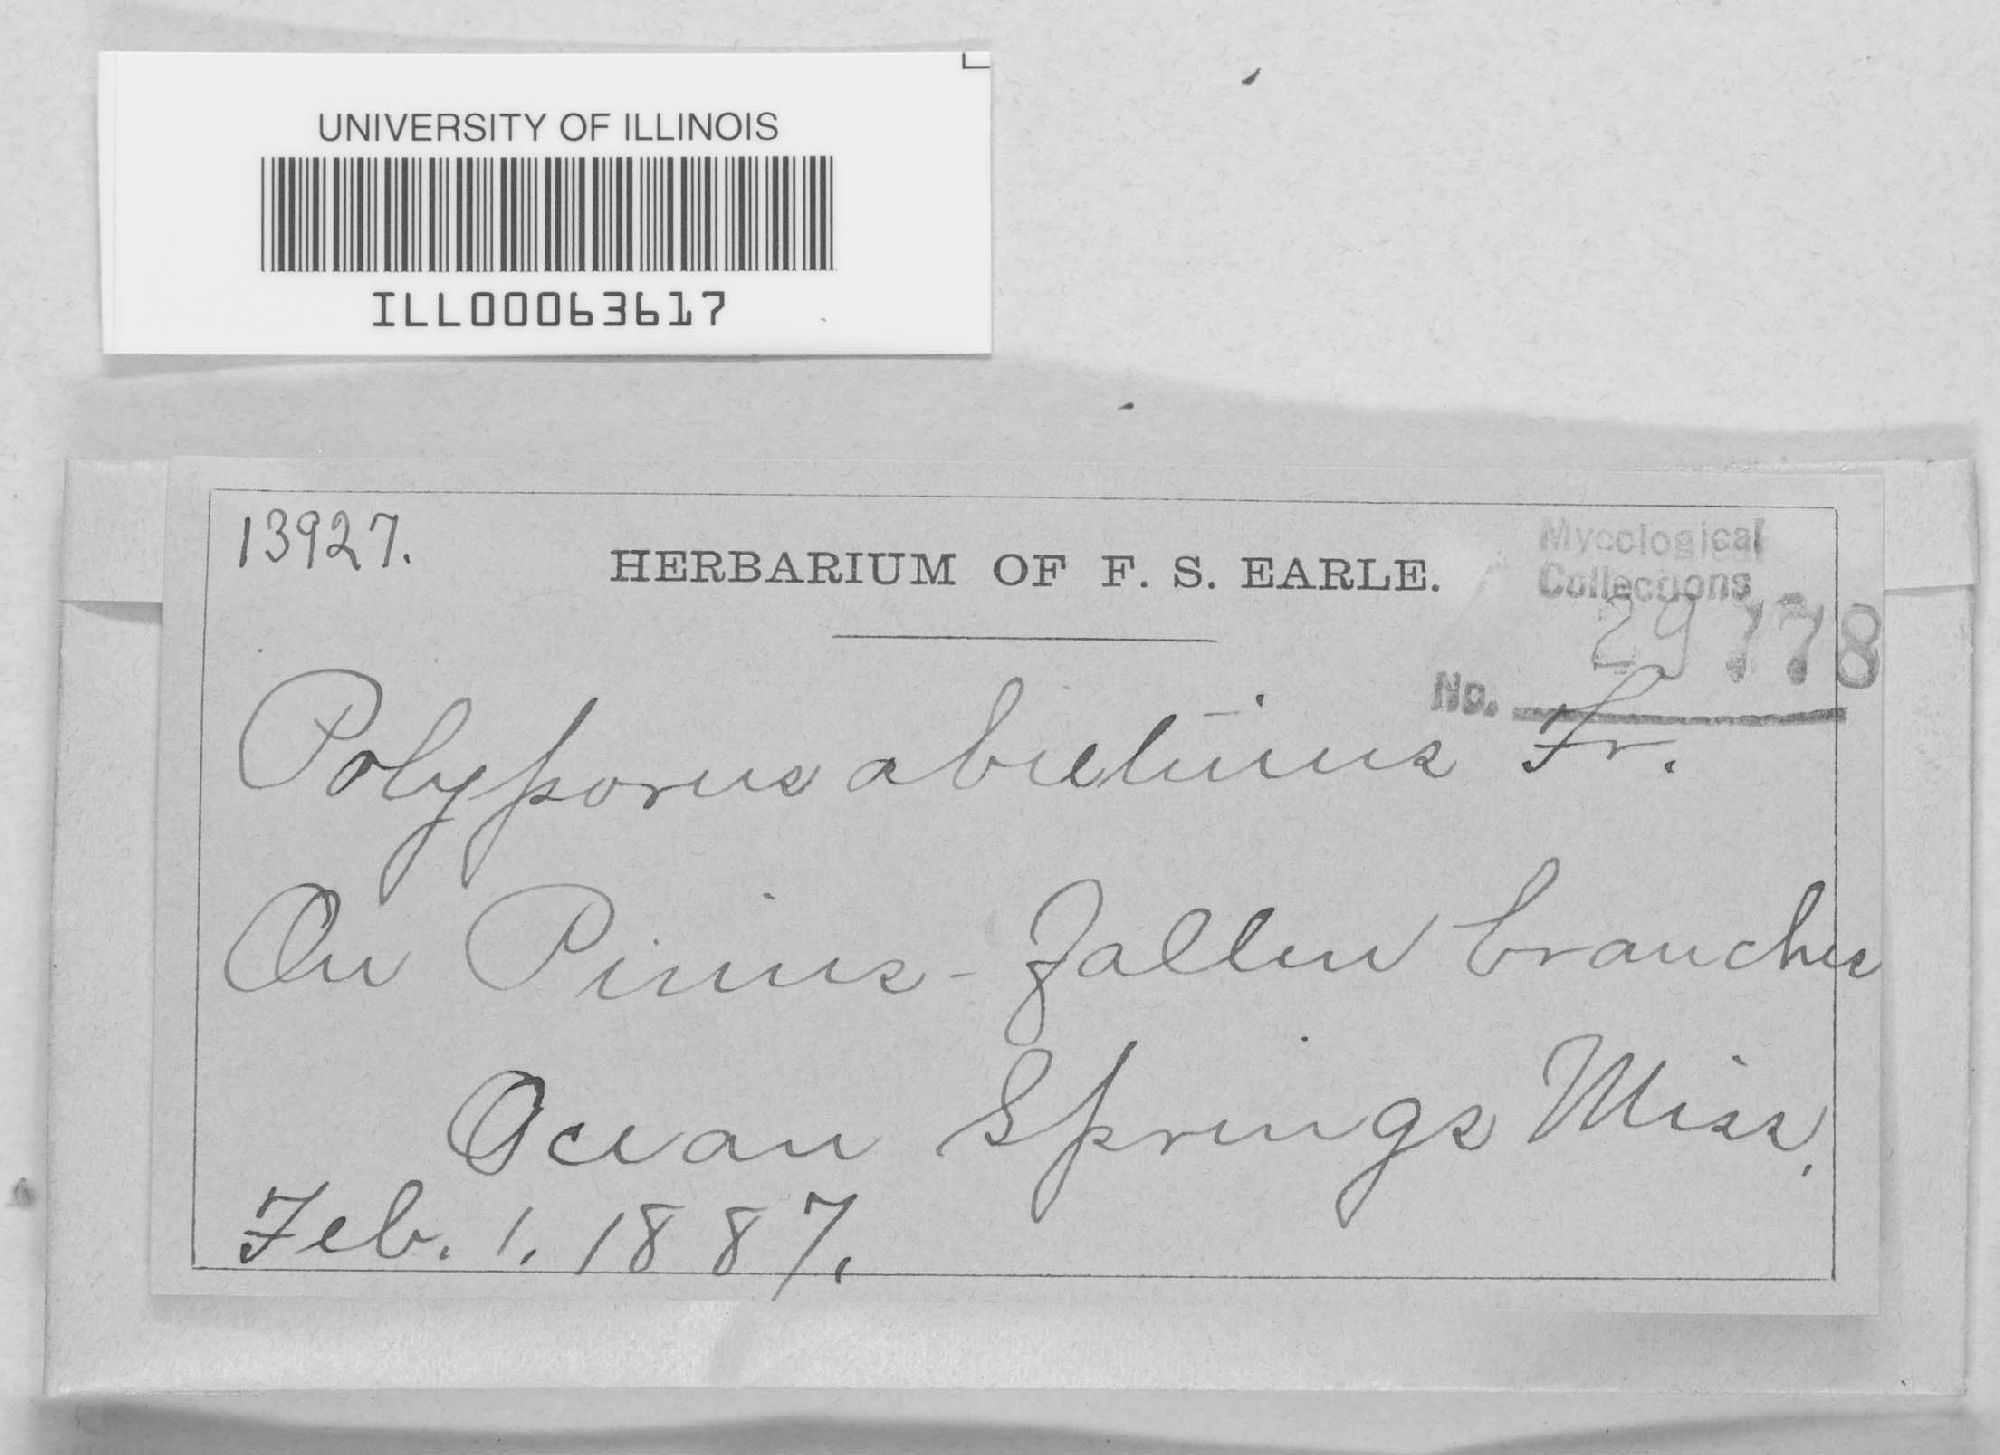 UNIVERSITY OF ILLINOIS
ILL00063617
13927.
HERBARIUM OF F. S. EARLE.
Mycological
Collections
29778
No.
Polyporus abietinus Fr.
On Pinus - fallen branches
Ocean Springs Miss.
Feb. 1. 1887.